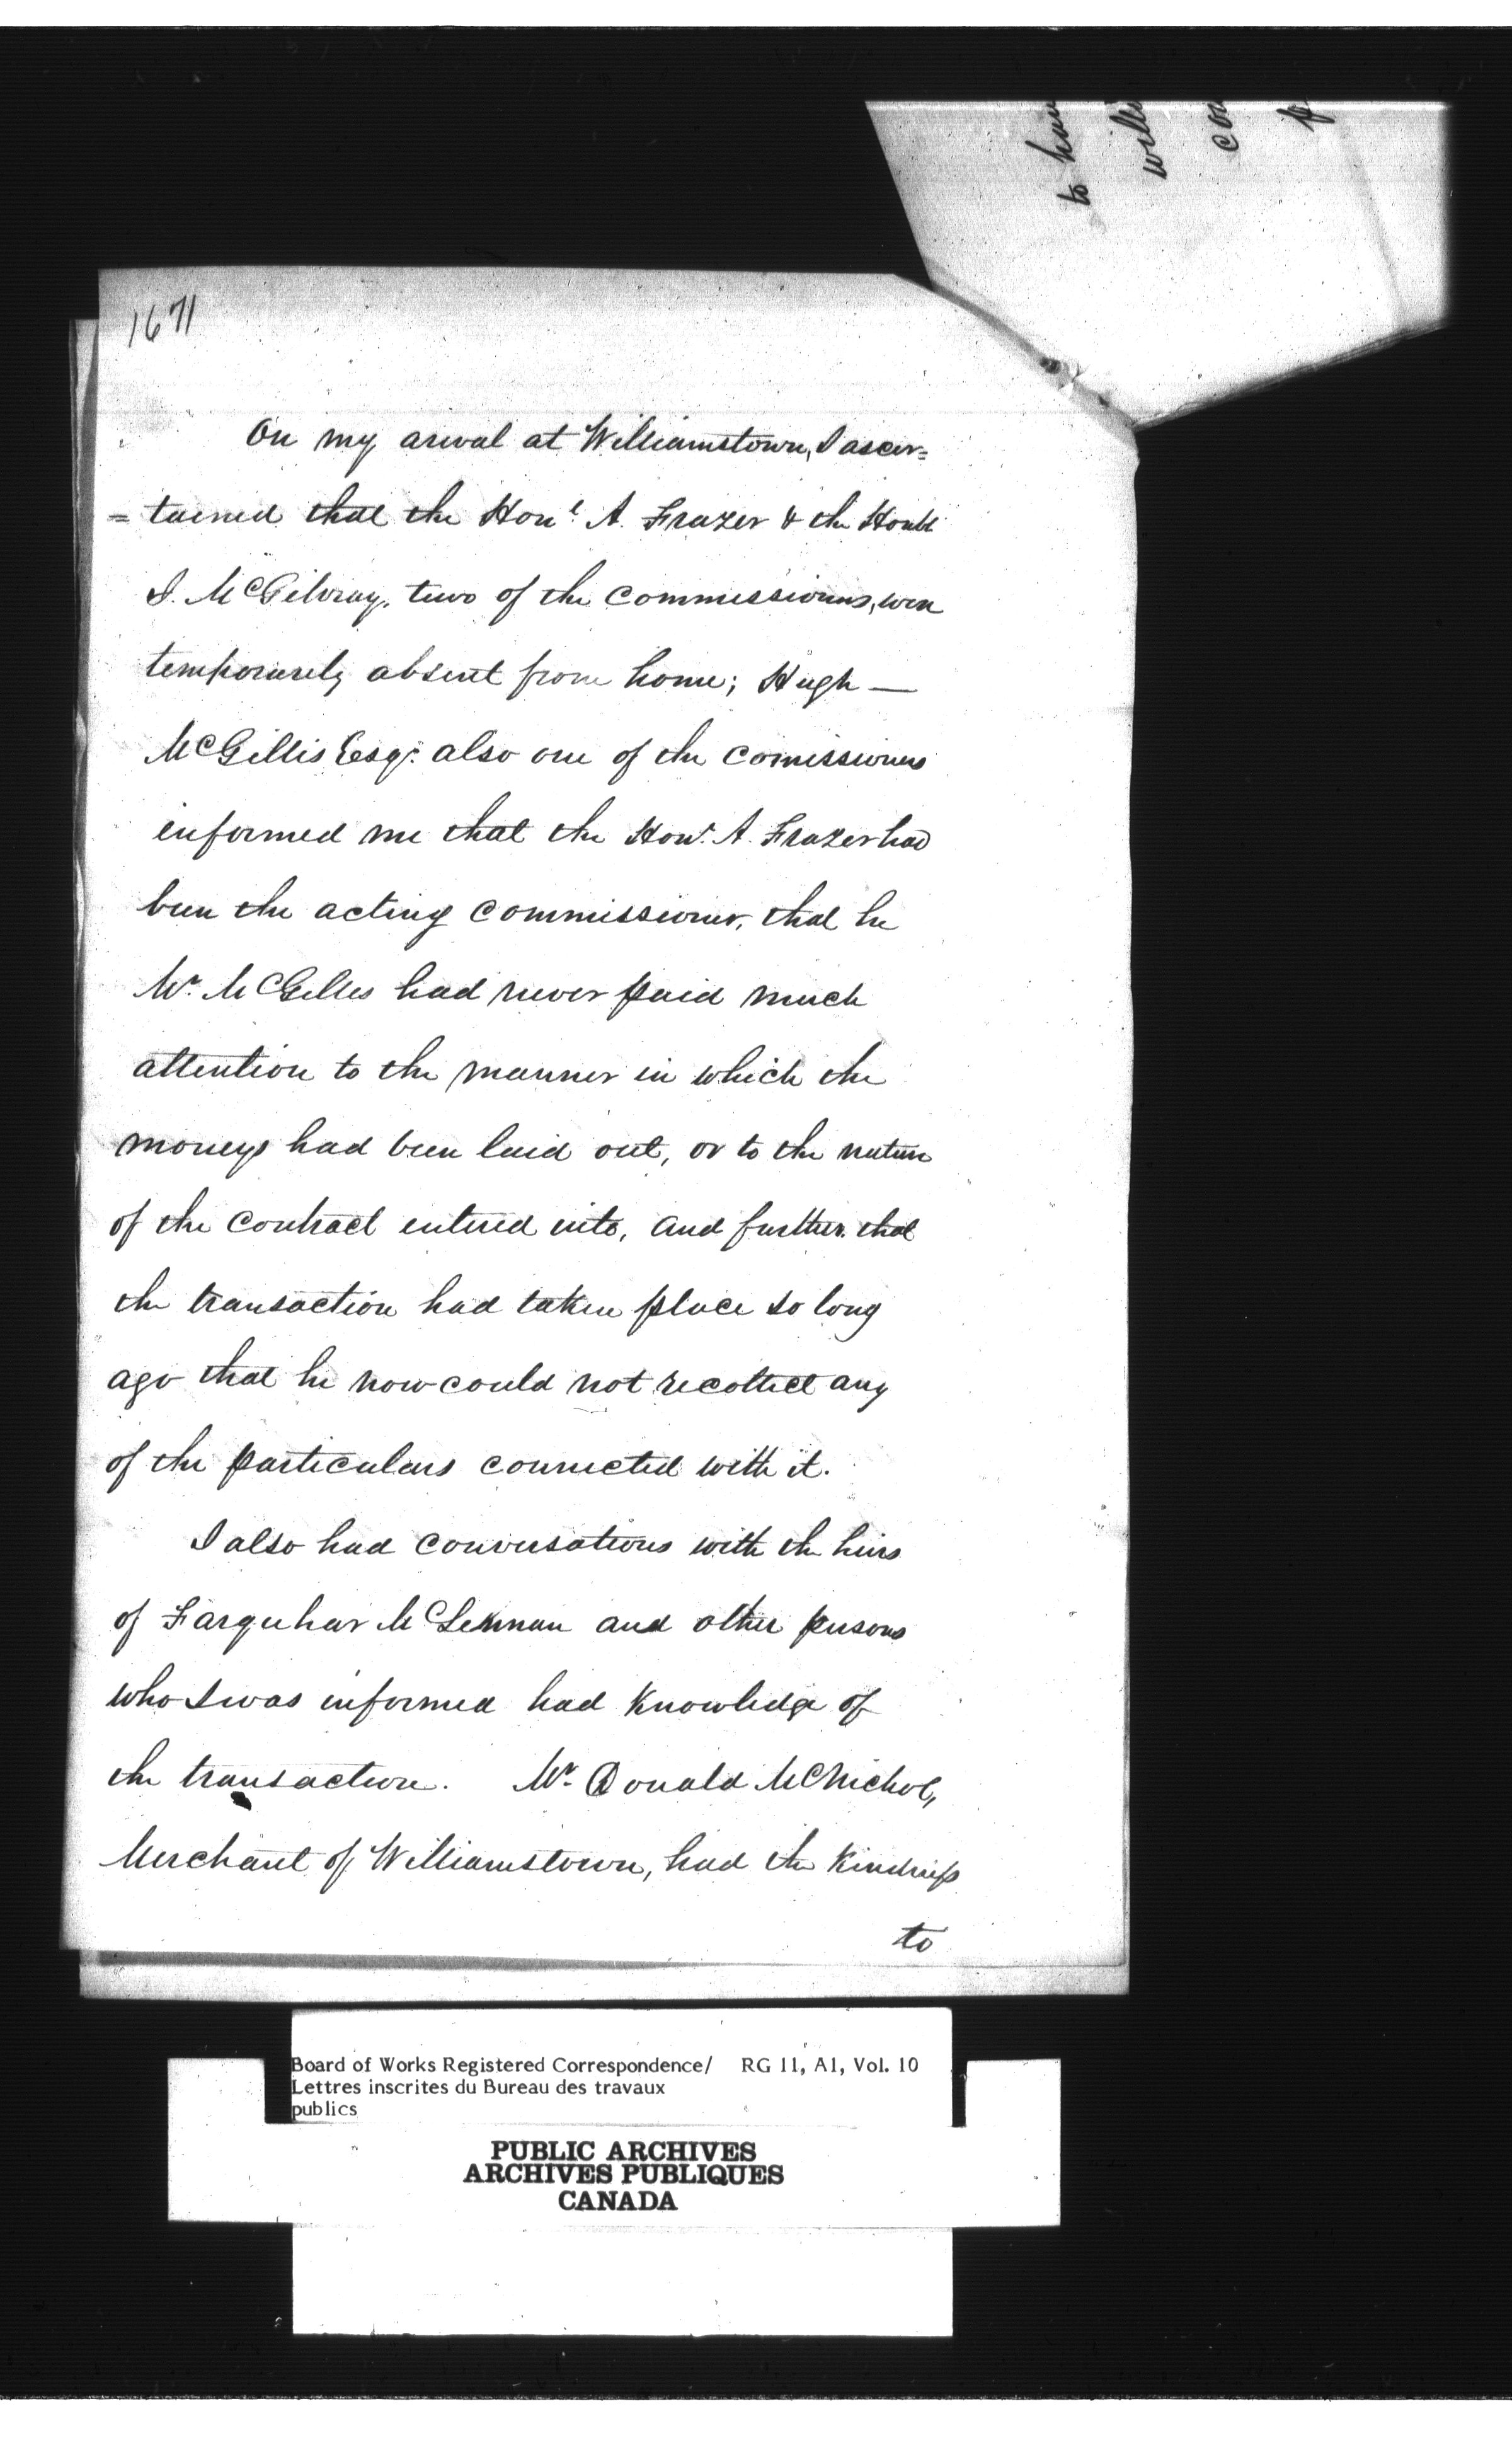 to hav
willi
con
p
1671
On my arival at Williamstown, I ascer=
=tained that the Hon.e A. Frazer & the Honble
J. McGilvray, two of the commissioners, were
temporarily absent from home; Hugh —
McGillis Esqr. also one of the comissioners
informed me that the Hon. A. Frazer had
been the acting commissioner, that he
Mr. McGilles had never paid much
attention to the manner in which the
moneys had been laid out, or to the nature
of the contract entered into, and further that
the transaction had taken place so long
ago that he now could not recollect any
of the particulars connected with it.
I also had conversations with the heirs
of Farquhar McLennan and other persons
who I was informed had knowledge of
the transaction. Mr. Donald McNichol,
Merchant of Williamstown, had the kindness
to
Board of Works Registered Correspondence/ RG 11, A1, Vol. 10
Lettres inscrites du Bureau des travaux
publics
PUBLIC ARCHIVES
ARCHIVES PUBLIQUES
CANADA